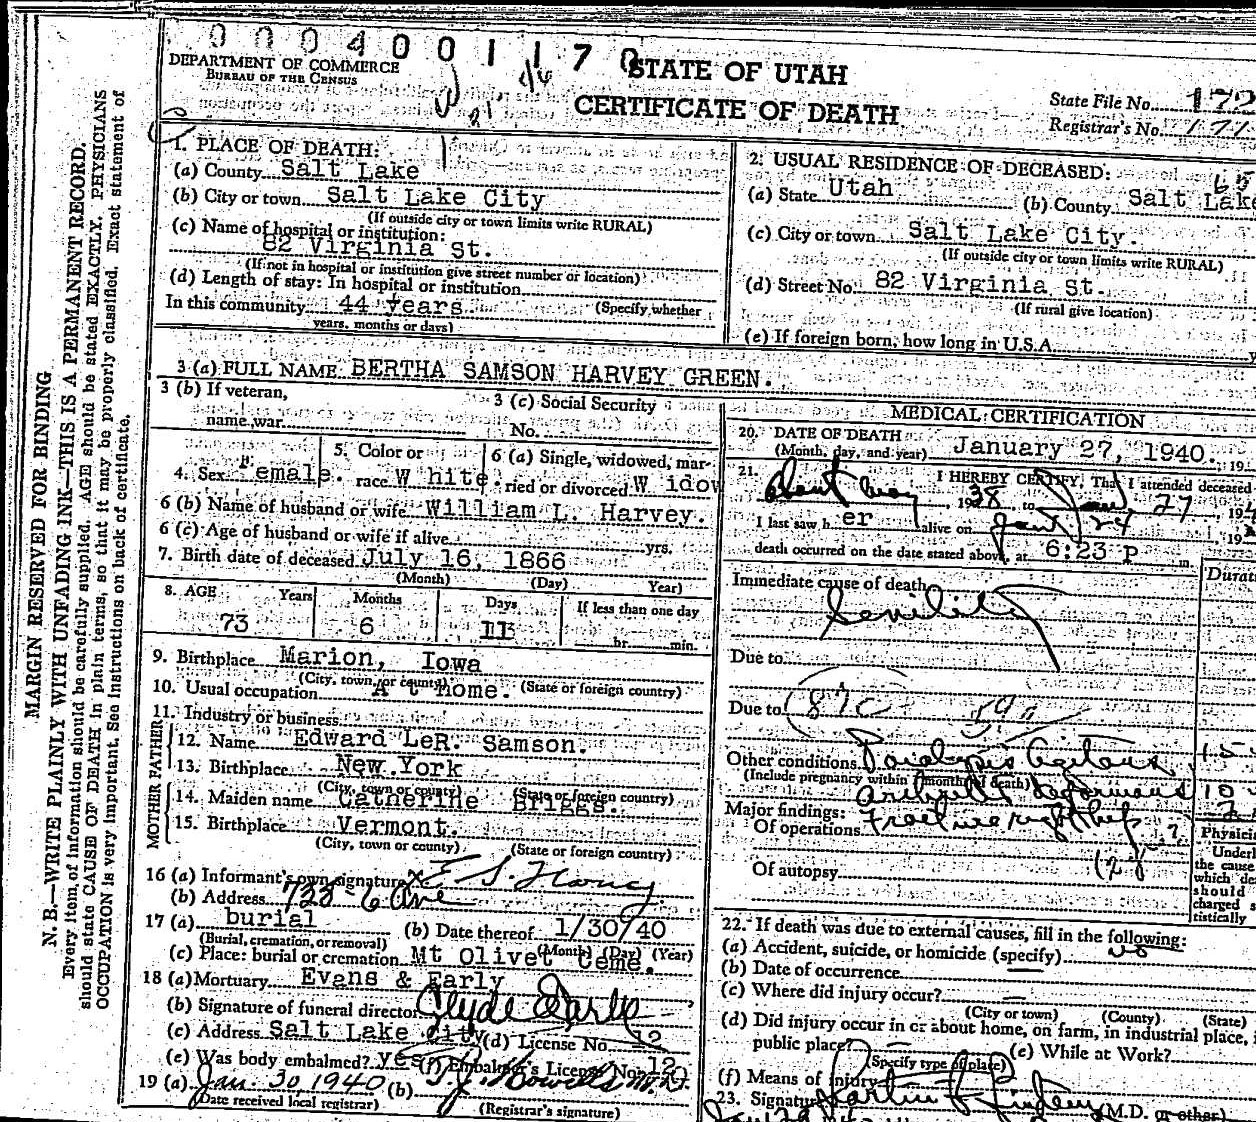 0 0 0 4 0 0 1 1 7 0
DEPARTMENT OF COMMERCE
BUREAU OF THE CENSUS
STATE OF UTAH
CERTIFICATE OF DEATH
State File No. 172
Registrar's No. 171
MARGIN RESERVED FOR BINDING
N. B.—WRITE PLAINLY WITH UNFADING INK—THIS IS A PERMANENT RECORD.
Every item of information should be carefully supplied. AGE should be stated EXACTLY. PHYSICIANS
should state CAUSE OF DEATH in plain terms, so that it may be properly classified. Exact statement of
OCCUPATION is very important. See instructions on back of certificate.
1. PLACE OF DEATH:
(a) County Salt Lake
(b) City or town Salt Lake City
(If outside city or town limits write RURAL)
(c) Name of hospital or institution:
82 Virginia St.
(If not in hospital or institution give street number or location)
(d) Length of stay: In hospital or institution
In this community 44 years (Specify whether
years, months or days)
2. USUAL RESIDENCE OF DECEASED:
(a) State Utah (b) County Salt Lake
(c) City or town Salt Lake City.
(If outside city or town limits write RURAL)
(d) Street No. 82 Virginia St.
(If rural give location)
(e) If foreign born, how long in U.S.A.
3 (a) FULL NAME BERTHA SAMSON HARVEY GREEN.
3 (b) If veteran,
name war
3 (c) Social Security
No.
4. Sex Female.
5. Color or
race White.
6 (a) Single, widowed, mar-
ried or divorced Widow
6 (b) Name of husband or wife William L. Harvey.
6 (c) Age of husband or wife if alive yrs.
7. Birth date of deceased July 16, 1866
(Month) (Day) Year)
8. AGE Years Months Days If less than one day
73 6 11 hr. min.
9. Birthplace Marion, Iowa
(City, town, or county) (State or foreign country)
10. Usual occupation At home.
11. Industry or business
FATHER
12. Name Edward LeR. Samson.
13. Birthplace New York
(City, town or county) (State or foreign country)
MOTHER
14. Maiden name Catherine Briggs.
15. Birthplace Vermont.
(City, town or county) (State or foreign country)
16 (a) Informant's own signature E S. Harvey
(b) Address 733 6 Ave
17 (a) burial (b) Date thereof 1/30/40
(Burial, cremation, or removal) (Month) (Day) (Year)
(c) Place: burial or cremation Mt Olivet Ceme.
18 (a) Mortuary Evans & Early
(b) Signature of funeral director Clyde Early
(c) Address Salt Lake City (d) License No. 12
(e) Was body embalmed? yes (f) Embalmer's License No. 120
19 (a) Jan. 30 1940 (b) T. J. Howells M.D.
(Date received local registrar) (Registrar's signature)
MEDICAL CERTIFICATION
20. DATE OF DEATH
(Month, day, and year) January 27, 1940.
21. I HEREBY CERTIFY, That I attended deceased
About May, 1938, to Jan 27, 19
I last saw her alive on Jan 24, 19
death occurred on the date stated above, at 6:23 P m.
Immediate cause of death
Senility
Due to
Due to 87c 59a
Other conditions Paralysis Agitans
(Include pregnancy within 3 months of death)
Arthritis Deformans 10
Major findings: Fracture right hip
Of operations
Of autopsy
Physici
Underl
the cause
which de
should
charged s
tistically
22. If death was due to external causes, fill in the following:
(a) Accident, suicide, or homicide (specify) no
(b) Date of occurrence —
(c) Where did injury occur? —
(City or town) (County) (State)
(d) Did injury occur in or about home, on farm, in industrial place, i
public place?
(Specify type of place)
(e) While at Work?
(f) Means of injury
23. Signature Martin (M.D. or other)